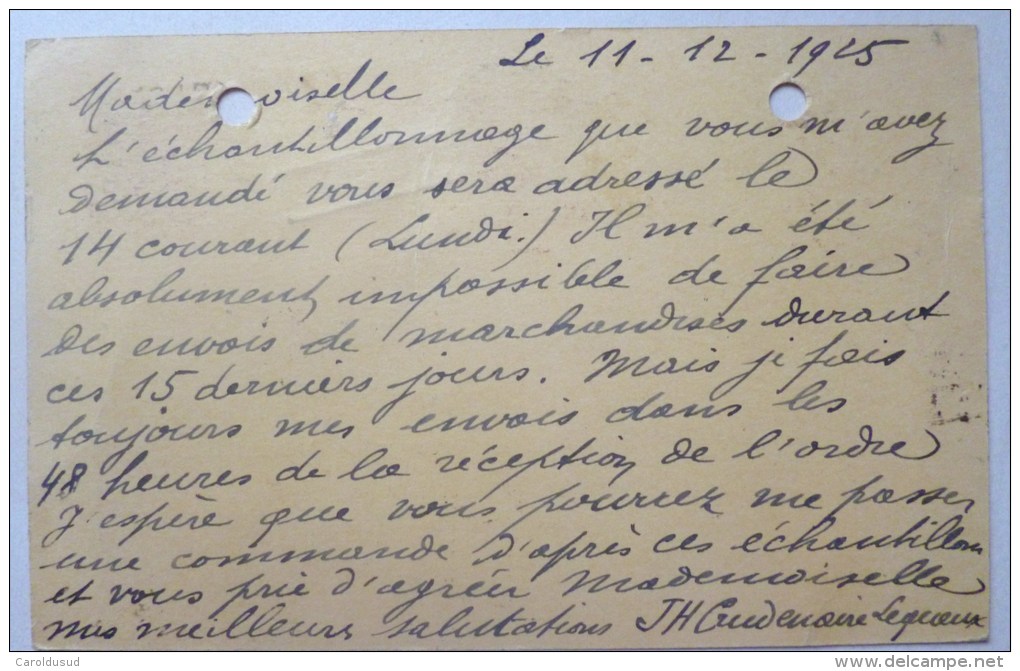 Le 11 - 12 - 1925
Mademoiselle
L'échantillonnage que vous m'avez
demandé vous sera adressé le
14 courant (Lundi.) Il m'a été
absolument impossible de faire
des envois de marchandises durant
ces 15 derniers jours. Mais je fais
toujours mes envois dans les
48 heures de la réception de l'ordre
J'espère que vous pourrez me passer
une commande d'après ces échantillons
et vous prie d'agréer Mademoiselle
mes meilleurs salutations JH
Caroledusud
delcampe.net